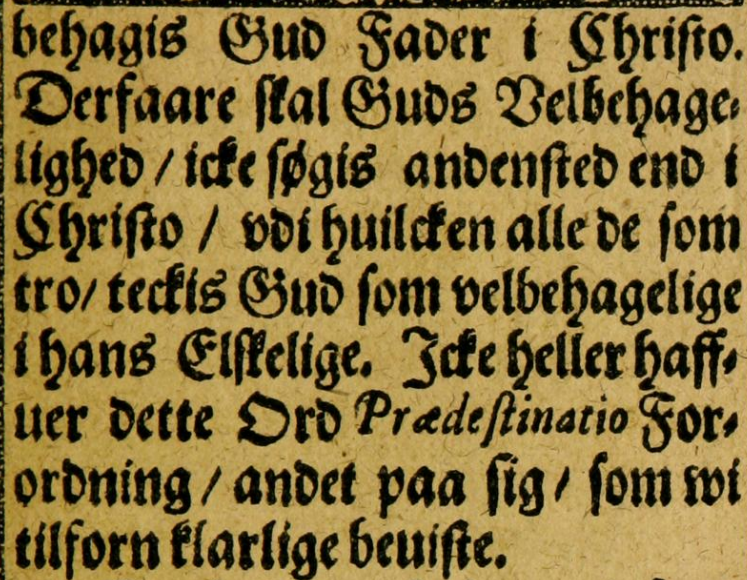 behagis Gud Fader i Christo.
Derfaare skal Guds Velbehage-
lighed / icke søgis andensted end i
Christo / vdi huilcken alle de som
tro / teckis Gud som velbehagelige
i hans Elskelige. Icke heller haff-
uer dette Ord Prædestinatio For-
ordning / andet paa sig / som wi
tilforn klarlige beuiste.